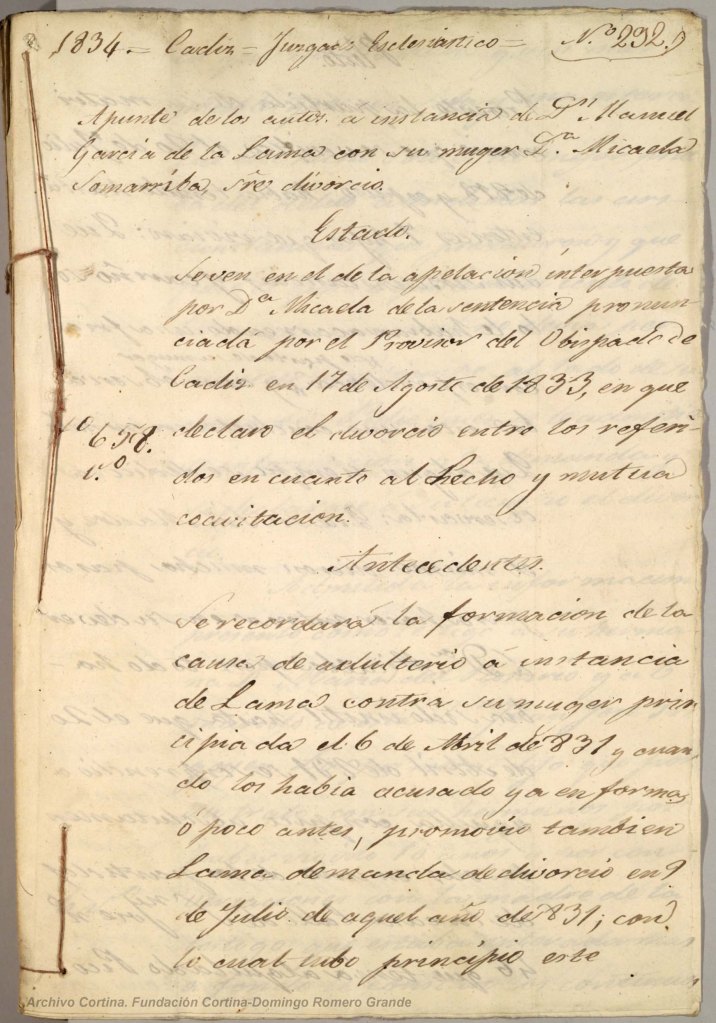 1834.= Cadiz = Juzgado Eclesiastico = N.º 292.
Apunte de los autos a instancia de D.n Manuel
Garcia de la Lama con su muger D.ª Micaela
Somarriba sre divorcio.
Estado.
Se ven en el de la apelacion interpuesta
por D.ª Micaela de la sentencia pronun-
ciada por el Provisor del Obispado de
Cadiz en 17 de Agosto de 1833, en que
declaro el divorcio entre los referi-
658.
dos en cuanto al Lecho y mutua
coavitacion.
Antecedentes.
Se recordará la formacion de la
causa de adulterio á instancia
de Lama contra su muger prin
cipiada el 6 de Abril de 831 y cuan-
do los habia acusado ya en forma,
ó poco antes, promovio tambien
Lama demanda de divorcio en 9
de Julio de aquel año de 831; con
lo cual tubo principio este
Archivo Cortina. Fundación Cortina-Domingo Romero Grande